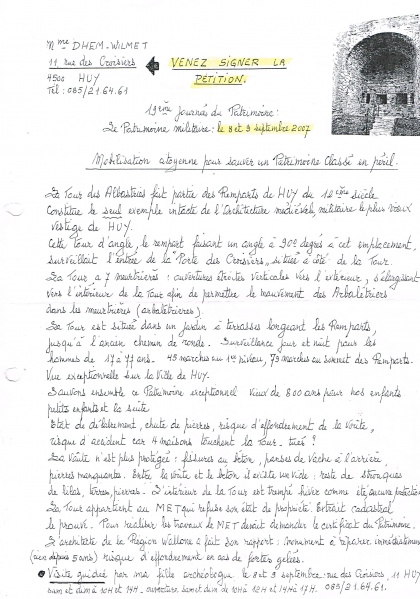 Mme DHEM-WILMET
11, rue des Croisiers
4500 HUY
Tel: 085/21.64.61
VENEZ SIGNER LA
PÉTITION.
19ème journées du Patrimoine:
Le Patrimoine militaire: le 8 et 9 septembre 2007
Mobilisation citoyenne pour sauver un Patrimoine Classé en péril.
La Tour des Albastiers fait partie des Remparts de HUY du 12ème siècle.
Constitue le seul exemple intacte de l'Architecture médiévale, militaire le plus vieux
vestige de HUY.
Cette Tour d'angle, le rempart faisant un angle à 90e degrés à cet emplacement,
surveillait l'entrée de la "Porte des Croisiers", située à côté de la Tour.
La Tour a 7 meurtrières: ouvertures étroites verticales vers l'extérieur, s'élargissant
vers l'intérieur de la Tour afin de permettre le mouvement des Arbalétriers
dans les meurtrières (arbalétrières).
La Tour est située dans un jardin à terrasses longeant les Remparts,
jusqu'à l'ancien chemin de ronde. - Surveillance jour et nuit pour les
hommes de 17 à 77 ans. - 45 marches au 1er niveau, 73 marches au sommet des Remparts.
Vue exceptionnelle sur la Ville de HUY.
Sauvons ensemble ce Patrimoine exceptionnel vieux de 800 ans pour nos enfants
petits enfants et la suite
Etat de délabrement, chute de pierres, risque d'effondrement de la voûte,
risque d'accident car 4 maisons touchent la Tour.
La Voûte n'est plus protégée: fissures au béton, panses de vache à l'arrière,
pierres manquantes. Entre la voûte et le béton il existe un vide: reste de
de lites, terres, pierres. - L'intérieur de la Tour est trempé hiver comme été, aucune protection
La Tour appartient au MET qui refuse son état de propriété. Extrait cadastral
le prouve. Pour réaliser les travaux le MET devrait demander le certificat du Patrimoine.
L'architecte de la Région Wallonne a fait son rapport: monument à réparer immédiatement
(rien depuis 5 ans) risque d'effondrement en cas de fortes gelées.
Visite guidée par ma fille archéologue le 8 et 9 septembre: rue des Croisiers, 11 HUY
sam et dim à 10H et 14H, ouverture sam et dim de 10H à 12H et 14H à 17H. 085/21.64.61.